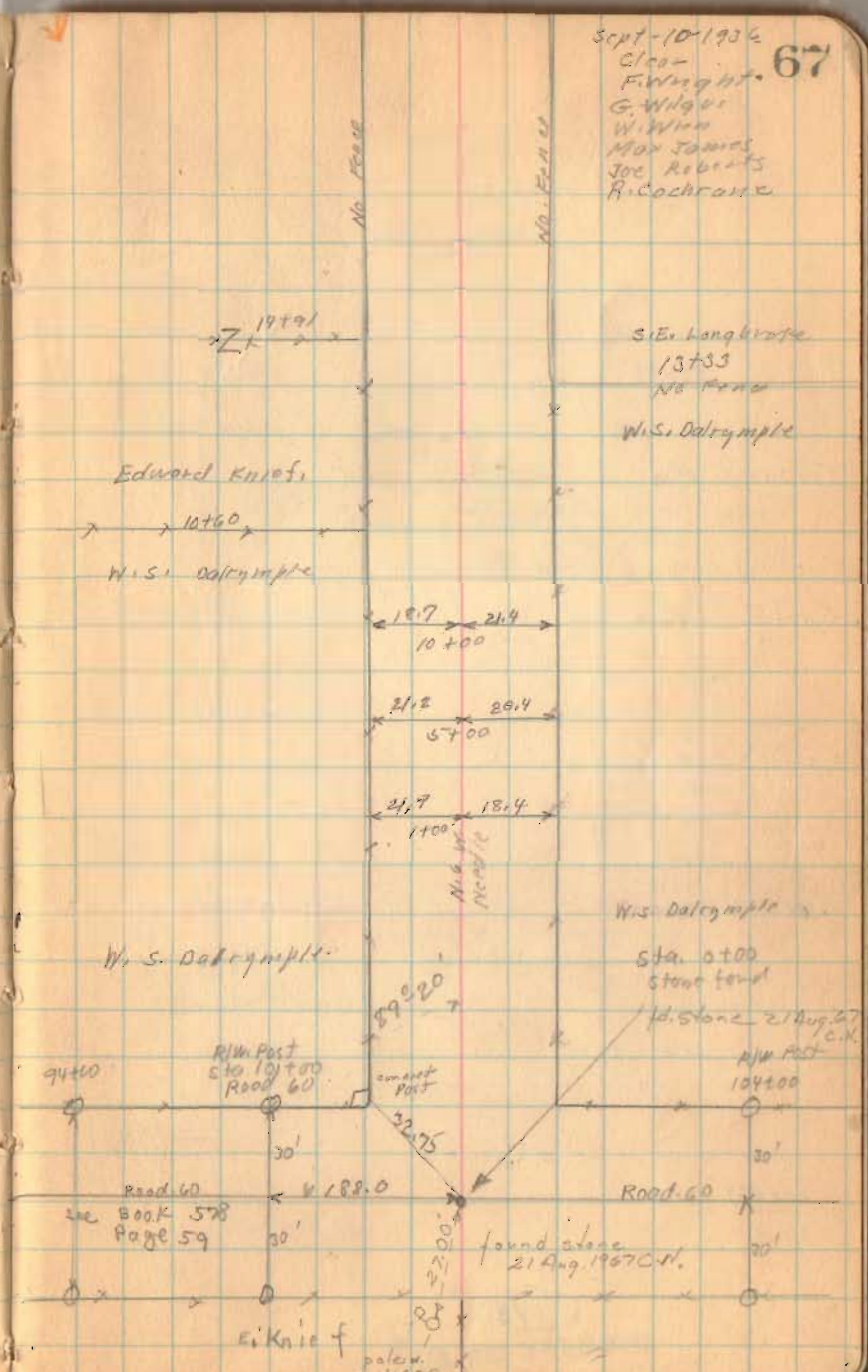 67
Clear
F. Wright.
G. Wilgus
W. Winn
Max James
Joe Roberts
R. Cochrane
No Fence
No. Fence
14+91
S.E. Longbrake
13+33
No Fence
W.S. Dalrymple
Edward Knief.
10+60
W.S. Dalrymple
18.7 21.4
10+00
21.2 20.4
5+00
21.7 18.4
1+00
Needle
W.S. Dalrymple
W.S. Dalrymple.
Sta. 0+00
Stone fond
fd. stone 21 Aug. 67
C.N.
89°20'
R/W. Post
Sta 101+00
Road 60
94+00
concret
Post
R/W Post
104+00
32.75
30'
30'
Road 60
188.0
Road 60
see Book 578
Page 59
30'
30'
found stone
21 Aug. 1967 C.N.
E. Knief